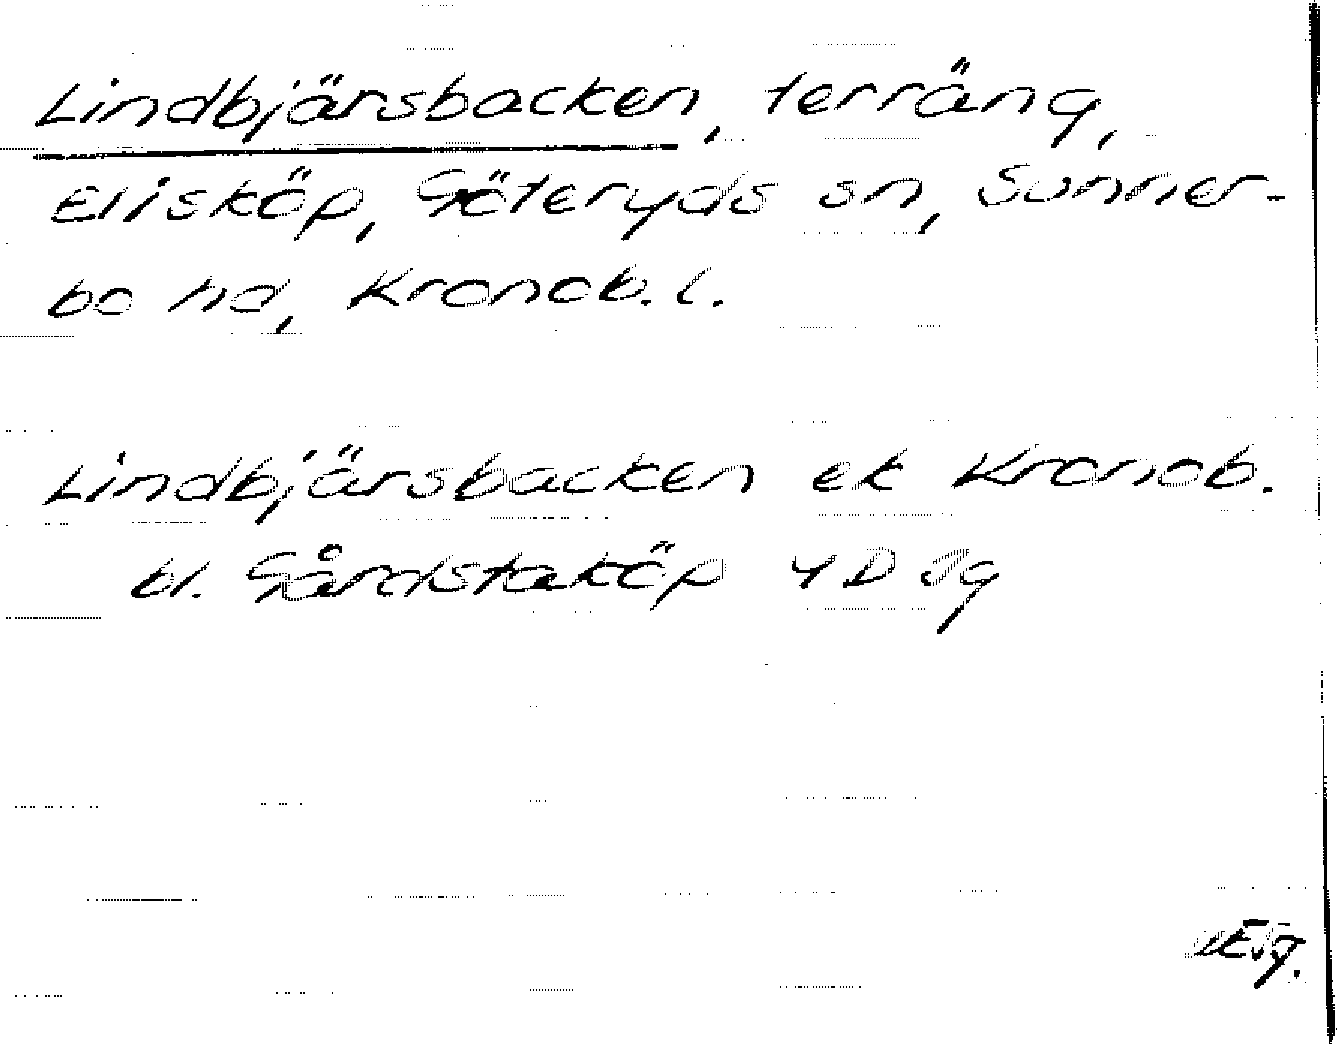 Lindbjärsbacken, terräng,
Elisköp, Göteryds sn, Sunner-
bo hd, Kronob. l.
Lindbjärsbacken ek Kronob.
bl. Gårdstaköp 4D Jg